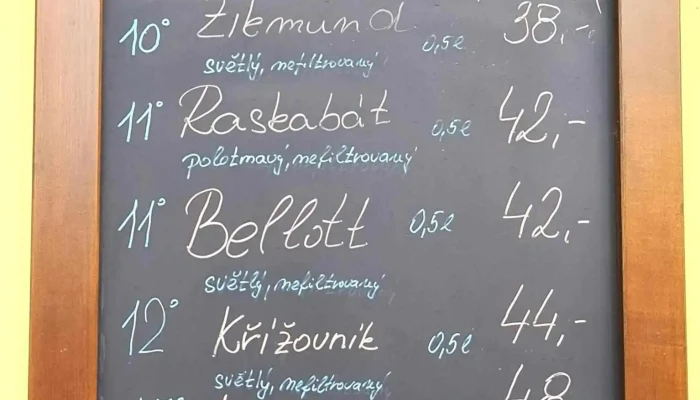 10° Zikmund 0,5l 38,-
světlý, nefiltrovaný
11° Raskabát 0,5l 42,-
polotmavý, nefiltrovaný
11° Bellott 0,5l 42,-
světlý, nefiltrovaný
12° Křižovník 0,5l 44,-
světlý, nefiltrovaný
48